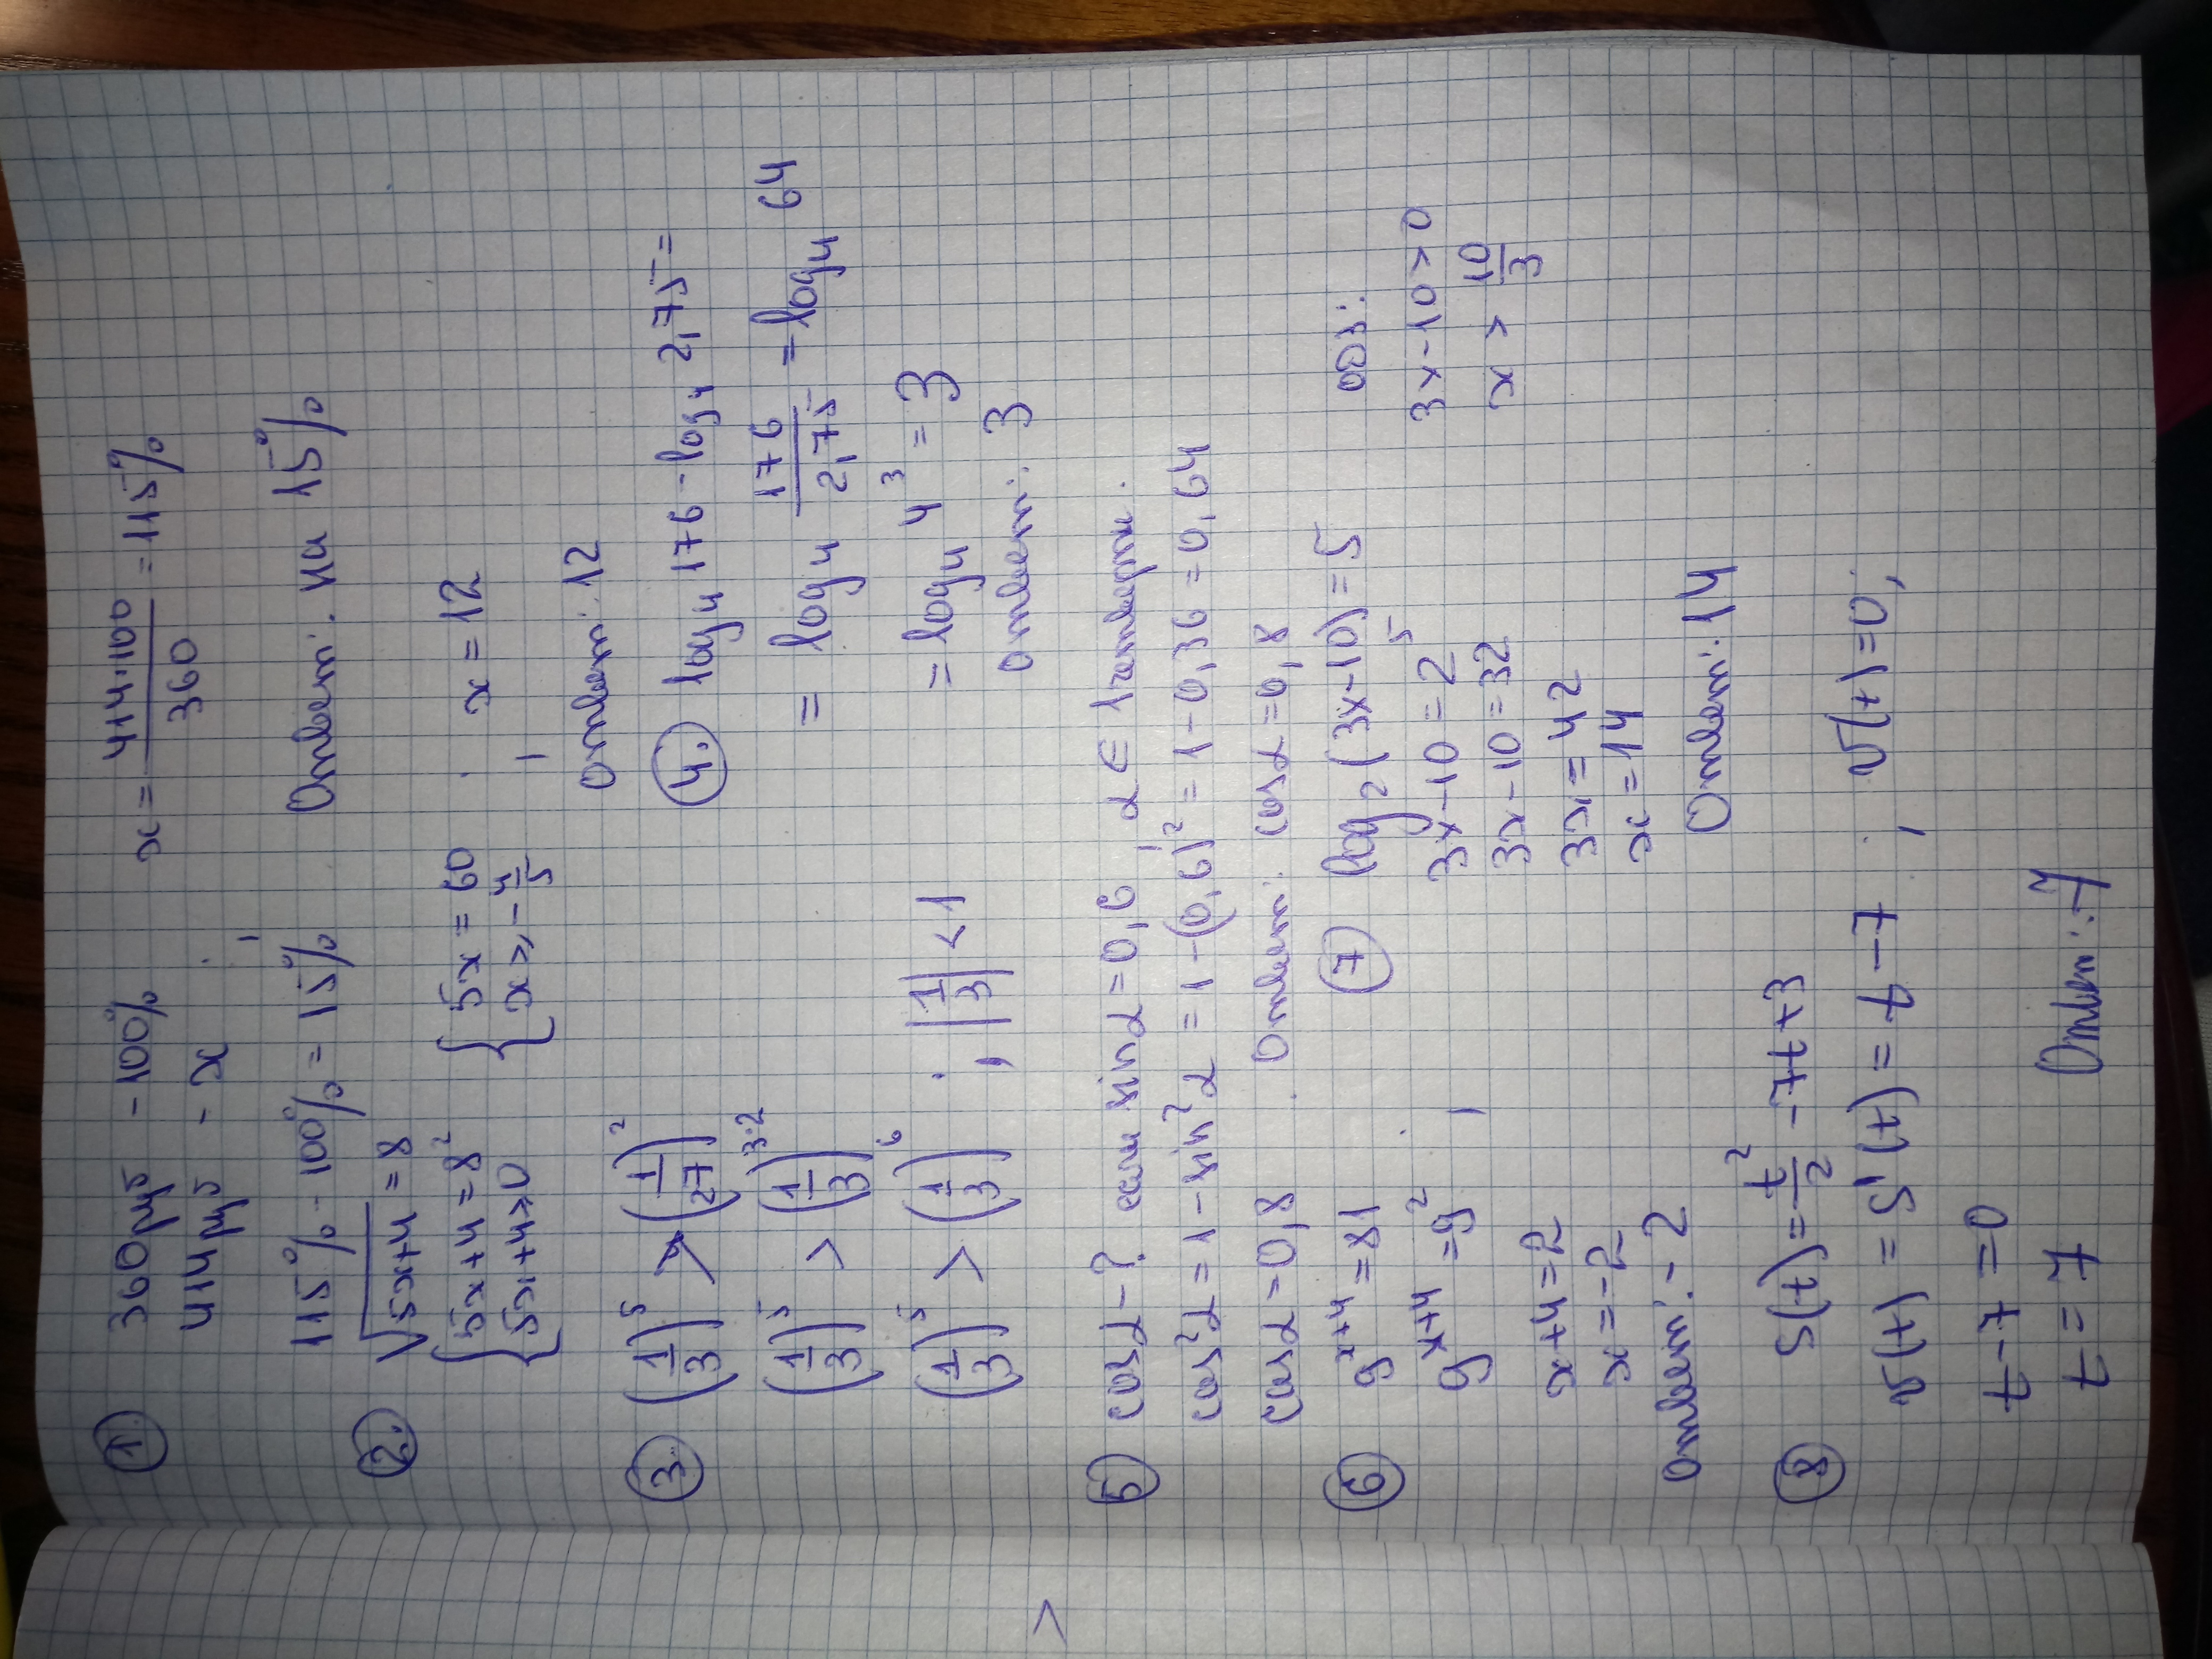 ① 360 руб - 100% x = \frac{414·100}{360} = 115%
414 руб - x
115% - 100% = 15% Ответ: на 15%
②. √(5x+4) = 8
{5x+4 = 8² {5x = 60 x = 12
{5x+4 ⩾ 0 {x ⩾ -\frac{4}{5}
Ответ: 12
③. (\frac{1}{3})⁵ > (\frac{1}{27})²
(\frac{1}{3})⁵ > (\frac{1}{3})^{3·2}
(\frac{1}{3})⁵ > (\frac{1}{3})⁶ ; |\frac{1}{3}| < 1
④. log₄ 176 - log₄ 2,75 =
= log₄ \frac{176}{2,75} = log₄ 64
= log₄ 4³ = 3
Ответ: 3
⑤ cos α - ? если sin α = 0,6, α ∈ I четверти.
cos² α = 1 - sin² α = 1 - (0,6)² = 1 - 0,36 = 0,64
cos α = 0,8. Ответ: cos α = 0,8
⑥ 9^{x+4} = 81
9^{x+4} = 9²
x+4 = 2
x = -2
Ответ: -2
⑦ log₂(3x-10) = 5 ОДЗ:
3x-10 = 2⁵ 3x-10 > 0
3x-10 = 32 x > \frac{10}{3}
3x = 42
x = 14
Ответ: 14
⑧ S(t) = \frac{t²}{2} - 7t + 3
v(t) = S'(t) = t - 7 v(t) = 0;
t - 7 = 0
t = 7 Ответ: 7
>